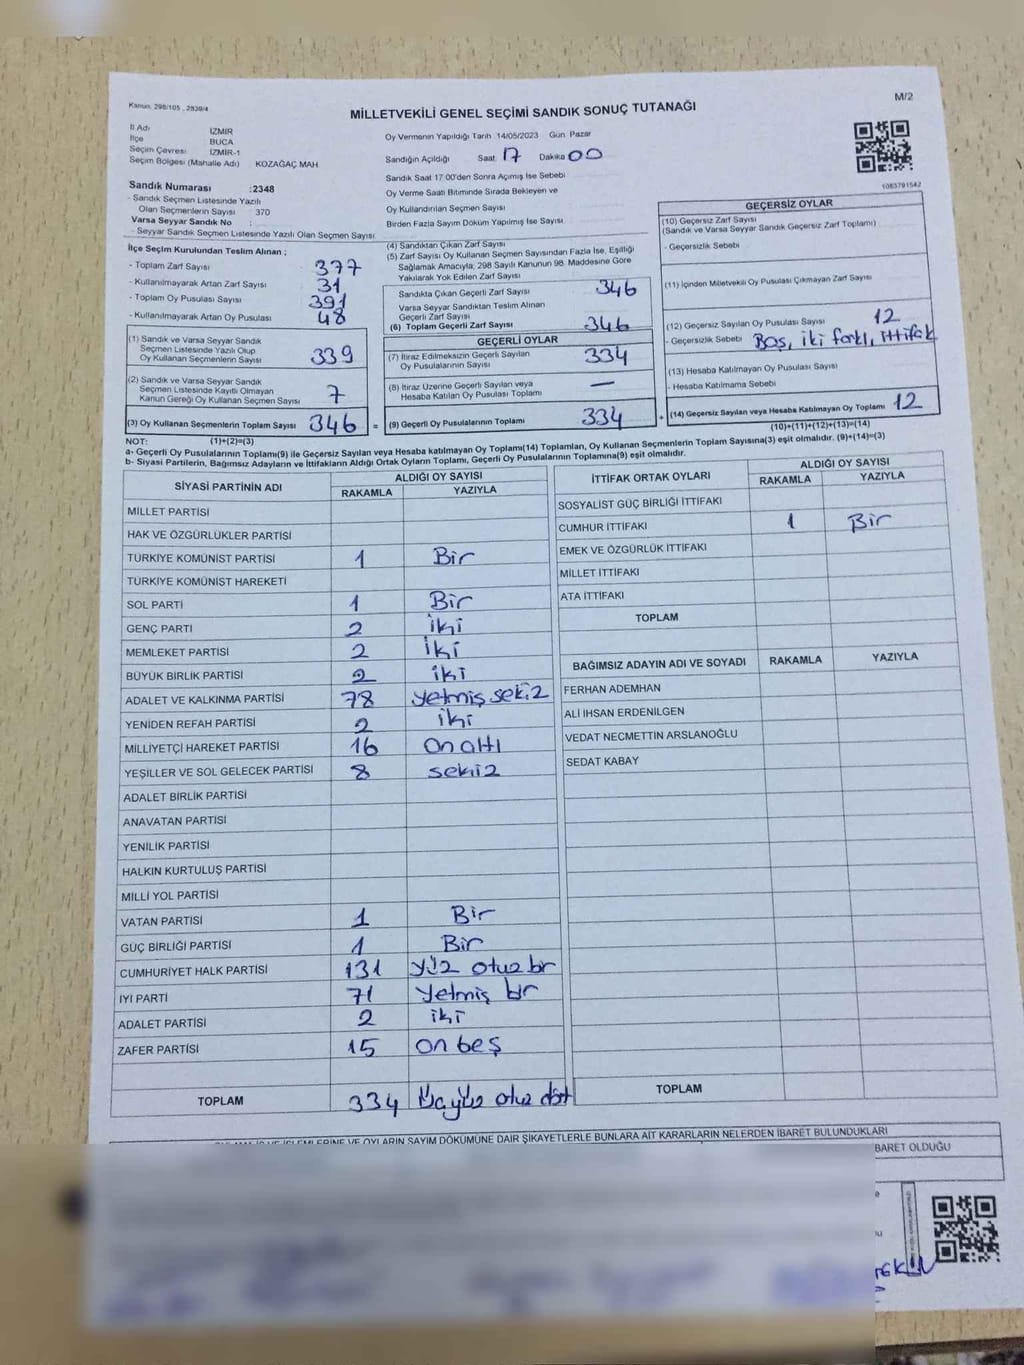 Kanun: 298/105 , 2839/4
M/2
MİLLETVEKİLİ GENEL SEÇİMİ SANDIK SONUÇ TUTANAĞI
İl Adı İZMİR
İlçe BUCA
Seçim Çevresi İZMİR-1
Seçim Bölgesi (Mahalle Adı) KOZAĞAÇ MAH
Sandık Numarası :2348
- Sandık Seçmen Listesinde Yazılı
Olan Seçmenlerin Sayısı 370
Varsa Seyyar Sandık No :
- Seyyar Sandık Seçmen Listesinde Yazılı Olan Seçmen Sayısı
Oy Vermenin Yapıldığı Tarih 14/05/2023 Gün Pazar
Sandığın Açıldığı Saat 17 Dakika 00
Sandık Saat 17 00'den Sonra Açımış İse Sebebi
Oy Verme Saati Bitiminde Sırada Bekleyen ve
Oy Kullandırılan Seçmen Sayısı
Birden Fazla Sayım Döküm Yapılmış İse Sayısı
1083791542
İlçe Seçim Kurulundan Teslim Alınan ;
- Toplam Zarf Sayısı 377
- Kullanılmayarak Artan Zarf Sayısı 31
- Toplam Oy Pusulası Sayısı 391
- Kullanılmayarak Artan Oy Pusulası 48
(1) Sandık ve Varsa Seyyar Sandık
Seçmen Listesinde Yazılı Olup
Oy Kullanan Seçmenlerin Sayısı 339
(2) Sandık ve Varsa Seyyar Sandık
Seçmen Listesinde Kayıtlı Olmayan
Kanun Gereği Oy Kullanan Seçmen Sayısı 7
(3) Oy Kullanan Seçmenlerin Toplam Sayısı 346 =
(4) Sandıktan Çıkan Zarf Sayısı
(5) Zarf Sayısı Oy Kullanan Seçmen Sayısından Fazla İse, Eşitliği
Sağlamak Amacıyla, 298 Sayılı Kanunun 98. Maddesine Göre
Yakılarak Yok Edilen Zarf Sayısı
Sandıkta Çıkan Geçerli Zarf Sayısı 346
Varsa Seyyar Sandıktan Teslim Alınan
Geçerli Zarf Sayısı
(6) Toplam Geçerli Zarf Sayısı 346
GEÇERLİ OYLAR
(7) İtiraz Edilmeksizin Geçerli Sayılan
Oy Pusulalarının Sayısı 334
(8) İtiraz Üzerine Geçerli Sayılan veya
Hesaba Katılan Oy Pusulası Toplamı —
(9) Geçerli Oy Pusulalarının Toplamı 334 +
GEÇERSİZ OYLAR
(10) Geçersiz Zarf Sayısı
(Sandık ve Varsa Seyyar Sandık Geçersiz Zarf Toplamı)
- Geçersizlik Sebebi
(11) İçinden Milletvekili Oy Pusulası Çıkmayan Zarf Sayısı
(12) Geçersiz Sayılan Oy Pusulası Sayısı 12
- Geçersizlik Sebebi Boş, iki farklı, ittifak
(13) Hesaba Katılmayan Oy Pusulası Sayısı
- Hesaba Katılmama Sebebi
(14) Geçersiz Sayılan veya Hesaba Katılmayan Oy Toplamı 12
NOT: (1)+(2)=(3) (10)+(11)+(12)+(13)=(14)
a- Geçerli Oy Pusulalarının Toplamı(9) ile Geçersiz Sayılan veya Hesaba katılmayan Oy Toplamı(14) Toplamları, Oy Kullanan Seçmenlerin Toplam Sayısına(3) eşit olmalıdır. (9)+(14)=(3)
b- Siyasi Partilerin, Bağımsız Adayların ve İttifakların Aldığı Ortak Oyların Toplamı, Geçerli Oy Pusulalarının Toplamına(9) eşit olmalıdır.
SİYASİ PARTİNİN ADI ALDIĞI OY SAYISI
RAKAMLA YAZIYLA
MİLLET PARTİSİ
HAK VE ÖZGÜRLÜKLER PARTİSİ
TÜRKİYE KOMÜNİST PARTİSİ 1 Bir
TÜRKİYE KOMÜNİST HAREKETİ
SOL PARTİ 1 Bir
GENÇ PARTİ 2 iki
MEMLEKET PARTİSİ 2 iki
BÜYÜK BİRLİK PARTİSİ 2 iki
ADALET VE KALKINMA PARTİSİ 78 yetmiş sekiz
YENİDEN REFAH PARTİSİ 2 iki
MİLLİYETÇİ HAREKET PARTİSİ 16 on altı
YEŞİLLER VE SOL GELECEK PARTİSİ 8 sekiz
ADALET BİRLİK PARTİSİ
ANAVATAN PARTİSİ
YENİLİK PARTİSİ
HALKIN KURTULUŞ PARTİSİ
MİLLİ YOL PARTİSİ
VATAN PARTİSİ 1 Bir
GÜÇ BİRLİĞİ PARTİSİ 1 Bir
CUMHURİYET HALK PARTİSİ 131 yüz otuz bir
İYİ PARTİ 71 yetmiş bir
ADALET PARTİSİ 2 iki
ZAFER PARTİSİ 15 on beş
TOPLAM 334 Üçyüz otuz dört
İTTİFAK ORTAK OYLARI ALDIĞI OY SAYISI
RAKAMLA YAZIYLA
SOSYALİST GÜÇ BİRLİĞİ İTTİFAKI
CUMHUR İTTİFAKI 1 Bir
EMEK VE ÖZGÜRLÜK İTTİFAKI
MİLLET İTTİFAKI
ATA İTTİFAKI
TOPLAM
BAĞIMSIZ ADAYIN ADI VE SOYADI RAKAMLA YAZIYLA
FERHAN ADEMHAN
ALİ İHSAN ERDENİLGEN
VEDAT NECMETTİN ARSLANOĞLU
SEDAT KABAY
TOPLAM
VE OYLARIN SAYIM DÖKÜMÜNE DAİR ŞİKAYETLERLE BUNLARA AİT KARARLARIN NELERDEN İBARET BULUNDUKLARI
BARET OLDUĞU